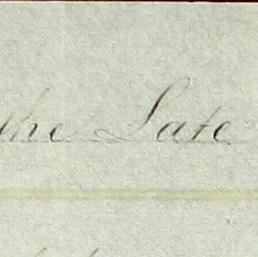 the Late